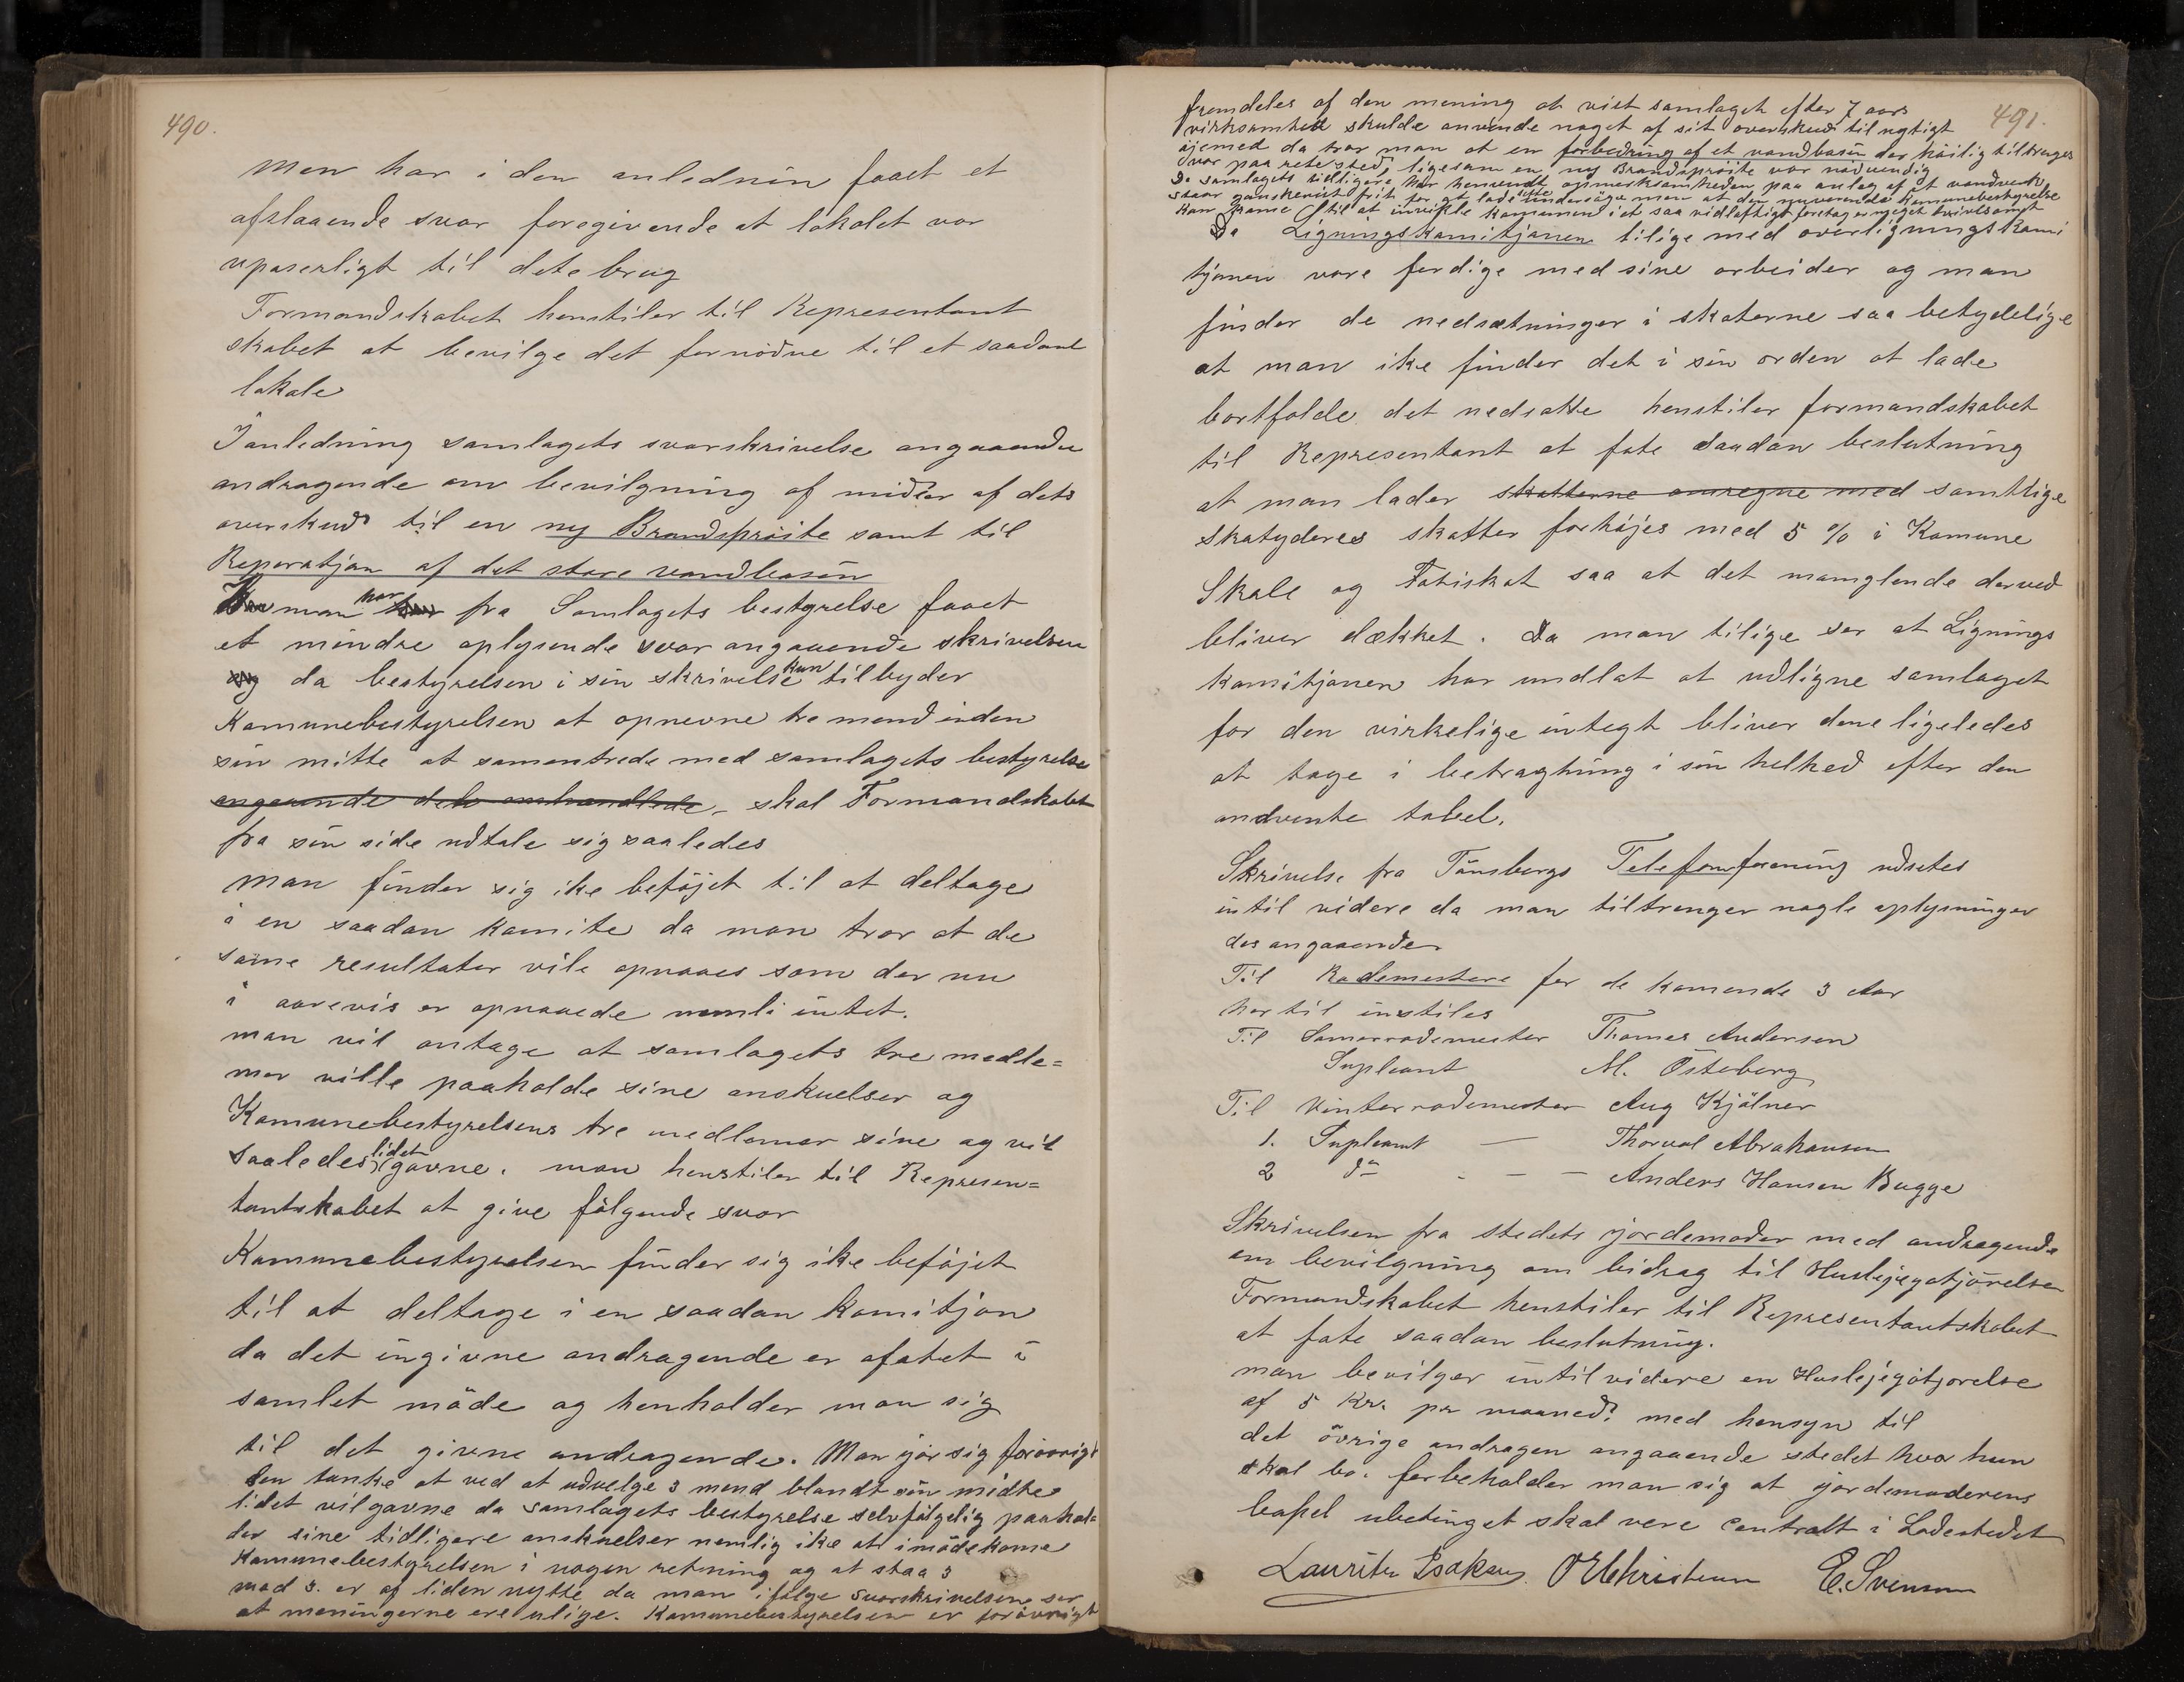 490.
Men har i den anlednin faaet et
afslaaende svar foregivende at lokalet var
upaserligt til dete brug
Formandskabet henstiler til Representant
skabet at bevilge det fornödne til et saadant
lokale
I anledning samlagets svarskrivelse angaaende
andragende om bevilgning af midler af dets
overskud til en ny Brandspröite samt til
Reperatjon af det store vandbasin
man har fra Samlagets bestyrelse faaet
et mindre oplysende svar angaaende skrivelsen
da bestyrelsen i sin skrivelse kun tilbyder
Kamunebestyrelsen at opnevne tre mend inden
sin mitte at samentrede med samlagets bestyrelse
angaaende det omhandlede, skal Formandskabet
fra sin side udtale sig saaledes
Man finder sig ike beföjet til at deltage
i en saadan kamite da man tror at de
same resultater vile opnaaes som der nu
i aarevis er opnaaede nemli intet.
man vil antage at samlagets tre medle=
mer ville paaholde sine anskuelser og
Kamunebestyrelsens tre medlemer sine og vil
saaledes lidet gavne. man henstiler til Represen=
tantskabet at give fölgende svar
Kamunebestyrelsen finder sig ike beföjet
til at deltage i en saadan Komitjon
da det ingivne andragende er afatet i
samlet möde og henholder man sig
til det givne andragende. Man gjör sig forövrigt
den tanke at ved at udvelge 3 mend blandt sin midte
lidet vil gavne da samlagets bestyrelse selvfölgelig paahol=
der sine tidligere anskuelser nemlig ike at imödekome
Kamunebestyrelsen i nogen retning og at staa 3
mod 3. er af liden nytte da man ifölge svarskrivelsen ser
at meningerne ere ulige. Kamunebestyrelsen er forövrigt
491.
fremdeles af den mening at vist samlaget efter 7 aars
virksamhed skulde anvende noget af sit overskud til nytigt
öjemed da tror man at en forbedring af et vandbasin der höilig tiltrenges
var paa rete sted, ligesom en ny Brandspröite var nödvendig
Da samlagets tidligere har henvendt opmerksomheden paa anlag af et vandverk
staar ganskevist frit for at lade sette undersöge men at den nuverende Kamunebestyrelse
kan kame til at invikle kamunen i et saa vidlöftigt foretag er meget tvivlsomt
Da Ligningskamitjonen tilige med overligningskami
tjonen vare ferdige med sine arbeider og man
finder de nedsætninger i skaterne saa betydelige
at man ike finder det i sin orden at lade
bortfalde det nedsatte henstiler formandskabet
til Representant at fate saadan beslutning
at man lader skatterne omregne med samtlige
skatyderes skatter forhöjes med 5 % i Kamune
Skole og Fatiskat saa at det manglende derved
bliver dækket. Da man tilige ser at Lignings
kamitjonen har undlat at udligne samlaget
for den virkelige integt bliver dene ligeledes
at tage i betragtning i sin helhed efter den
andvente tabel.
Skrivelse fra Tönsbergs Telefonforening udsetes
intil videre da man tiltrenger nogle oplysninger
des angaaende
Til Rodemestere for de kamende 3 Aar
her til instiles
Til Somerrodemester Thomas Andersen
Supleant M. Österberg
Til Vinterrodemester Aug Kjölner
1. Supleant — Thorval Abrahansen
2 do - — — Anders Hansen Bugge
Skrivelsen fra stedets gjordemoder med andragende
om bevilgning om bidrag til Huslejegotjörelse
Formandskabet henstiler til Representantskabet
at fate saadan beslutning.
man bevilger intil videre en Huslejegotjorelse
af 5 Kr. pr maaned. med hensyn til
det övrige andragen angaaende stedet hvor hun
skal bo. forbeholder man sig at gjordemoderens
bopel ubetinget skal vere centralt i Ladestedet
Lauritz Isaksen O Christensen E. Svensen